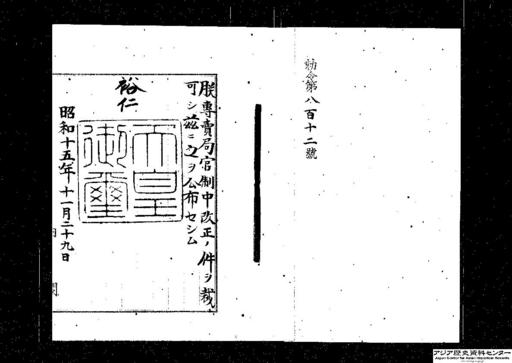 勅令第八百十二號
朕專賣局官制中改正ノ件ヲ裁
可シ茲ニ之ヲ公布セシム
裕仁
天皇
御璽
昭和十五年十一月二十九日
アジア歴史資料センター
Japan Center for Asian Historical Records